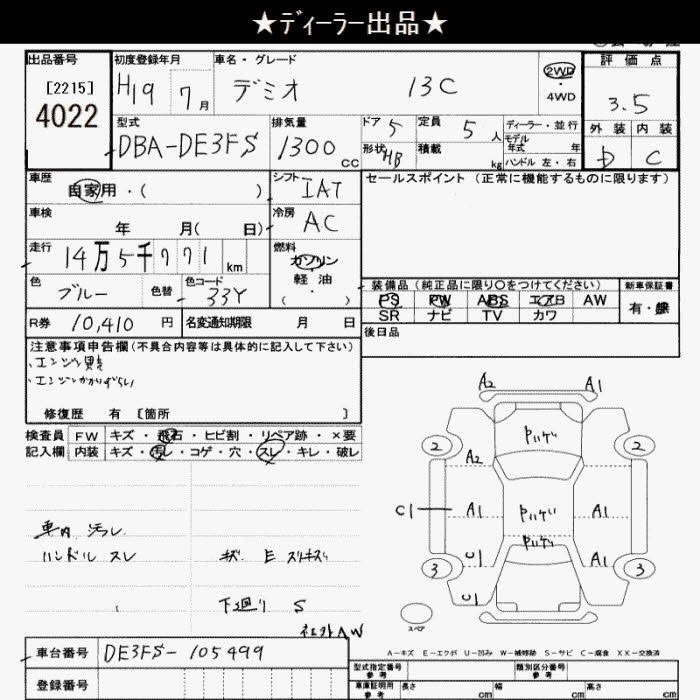 ★ディーラー出品★
出品番号 初度登録年月 車名・グレード 評価点
[2215] H19 7月 デミオ 13C 2WD・4WD 3.5
4022
型式 排気量 ドア 定員 ディーラー・並行 外装 内装
DBA-DE3FS 1300cc 5 5人 モデル年式 年
形状 HB 積載 kg ハンドル 左・右 D C
車歴 シフト セールスポイント (正常に機能するものに限ります)
自家用・( ) IAT
車検 冷房
年 月( 日) AC
走行 燃料
14万5千771km ガソリン
色 色替 色コード 軽油
ブルー 33Y ・( )
装備品 (純正品に限り○をつけてください) 新車保証書
PS PW ABS エアB AW 有・無
SR ナビ TV カワ
R券 10,410円 名変通知期限 月 日
後日品
注意事項申告欄(不具合内容等は具体的に記入して下さい)
・エンジン異音
・エンジンかかりずらい
修復歴 有 [箇所 ]
検査員 FW キズ・飛石・ヒビ割・リペア跡・×要
記入欄 内装 キズ・汚レ・コゲ・穴・スレ・キレ・破レ
A2 A1
2 2
A2
C1 A1 A1
U1 A1
3 3
U1
車内 汚レ
ハンドル スレ キズ E スリキズ
下廻り S
スペア
A-キズ E-エクボ U-凹み W-補修跡 S-サビ C-腐食 XX-交換済
車台番号 DE3FS-105499
登録番号
型式指定番号 参考 類別区分番号 参考
車庫証明用 参考 長さ cm 幅 cm 高さ cm